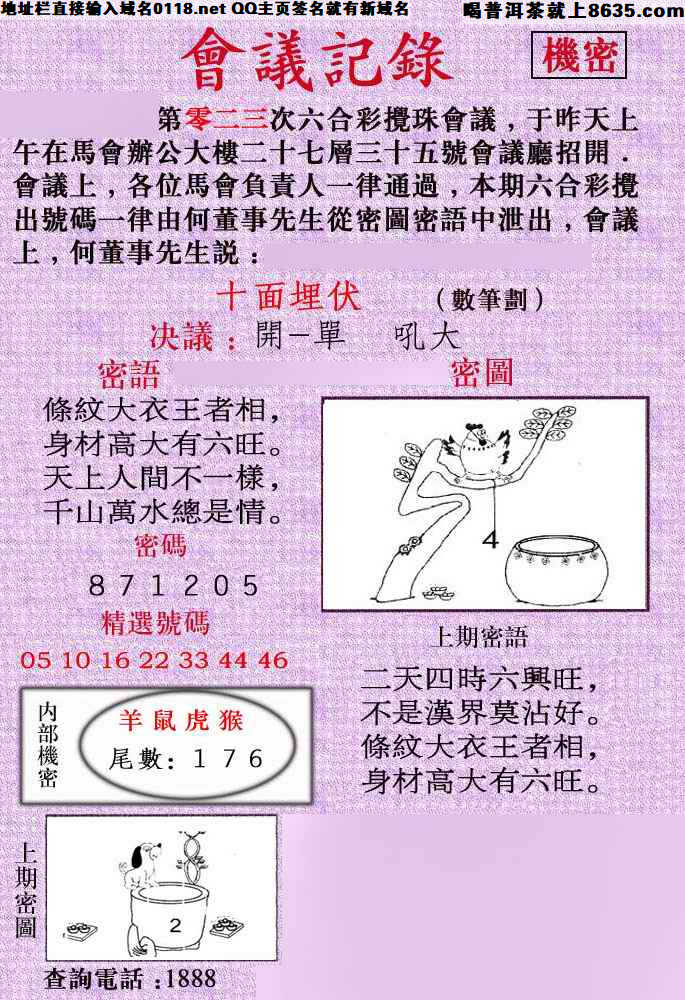 地址栏直接输入域名0118.net QQ主页签名就有新域名 喝普洱茶就上8635.com
會議記錄 機密
第零二三次六合彩攪珠會議，于昨天上
午在馬會辦公大樓二十七層三十五號會議廳招開．
會議上，各位馬會負責人一律通過，本期六合彩攪
出號碼一律由何董事先生從密圖密語中泄出，會議
上，何董事先生説：
十面埋伏 （數筆劃）
决議：開－單 吼大
密語 密圖
條紋大衣王者相，
身材高大有六旺。
天上人間不一樣，
千山萬水總是情。
密碼
8 7 1 2 0 5
精選號碼
05 10 16 22 33 44 46
4
内部機密
羊鼠虎猴
尾數：1 7 6
上期密語
二天四時六興旺，
不是漢界莫沾好。
條紋大衣王者相，
身材高大有六旺。
上期密圖
2
查詢電話：1888